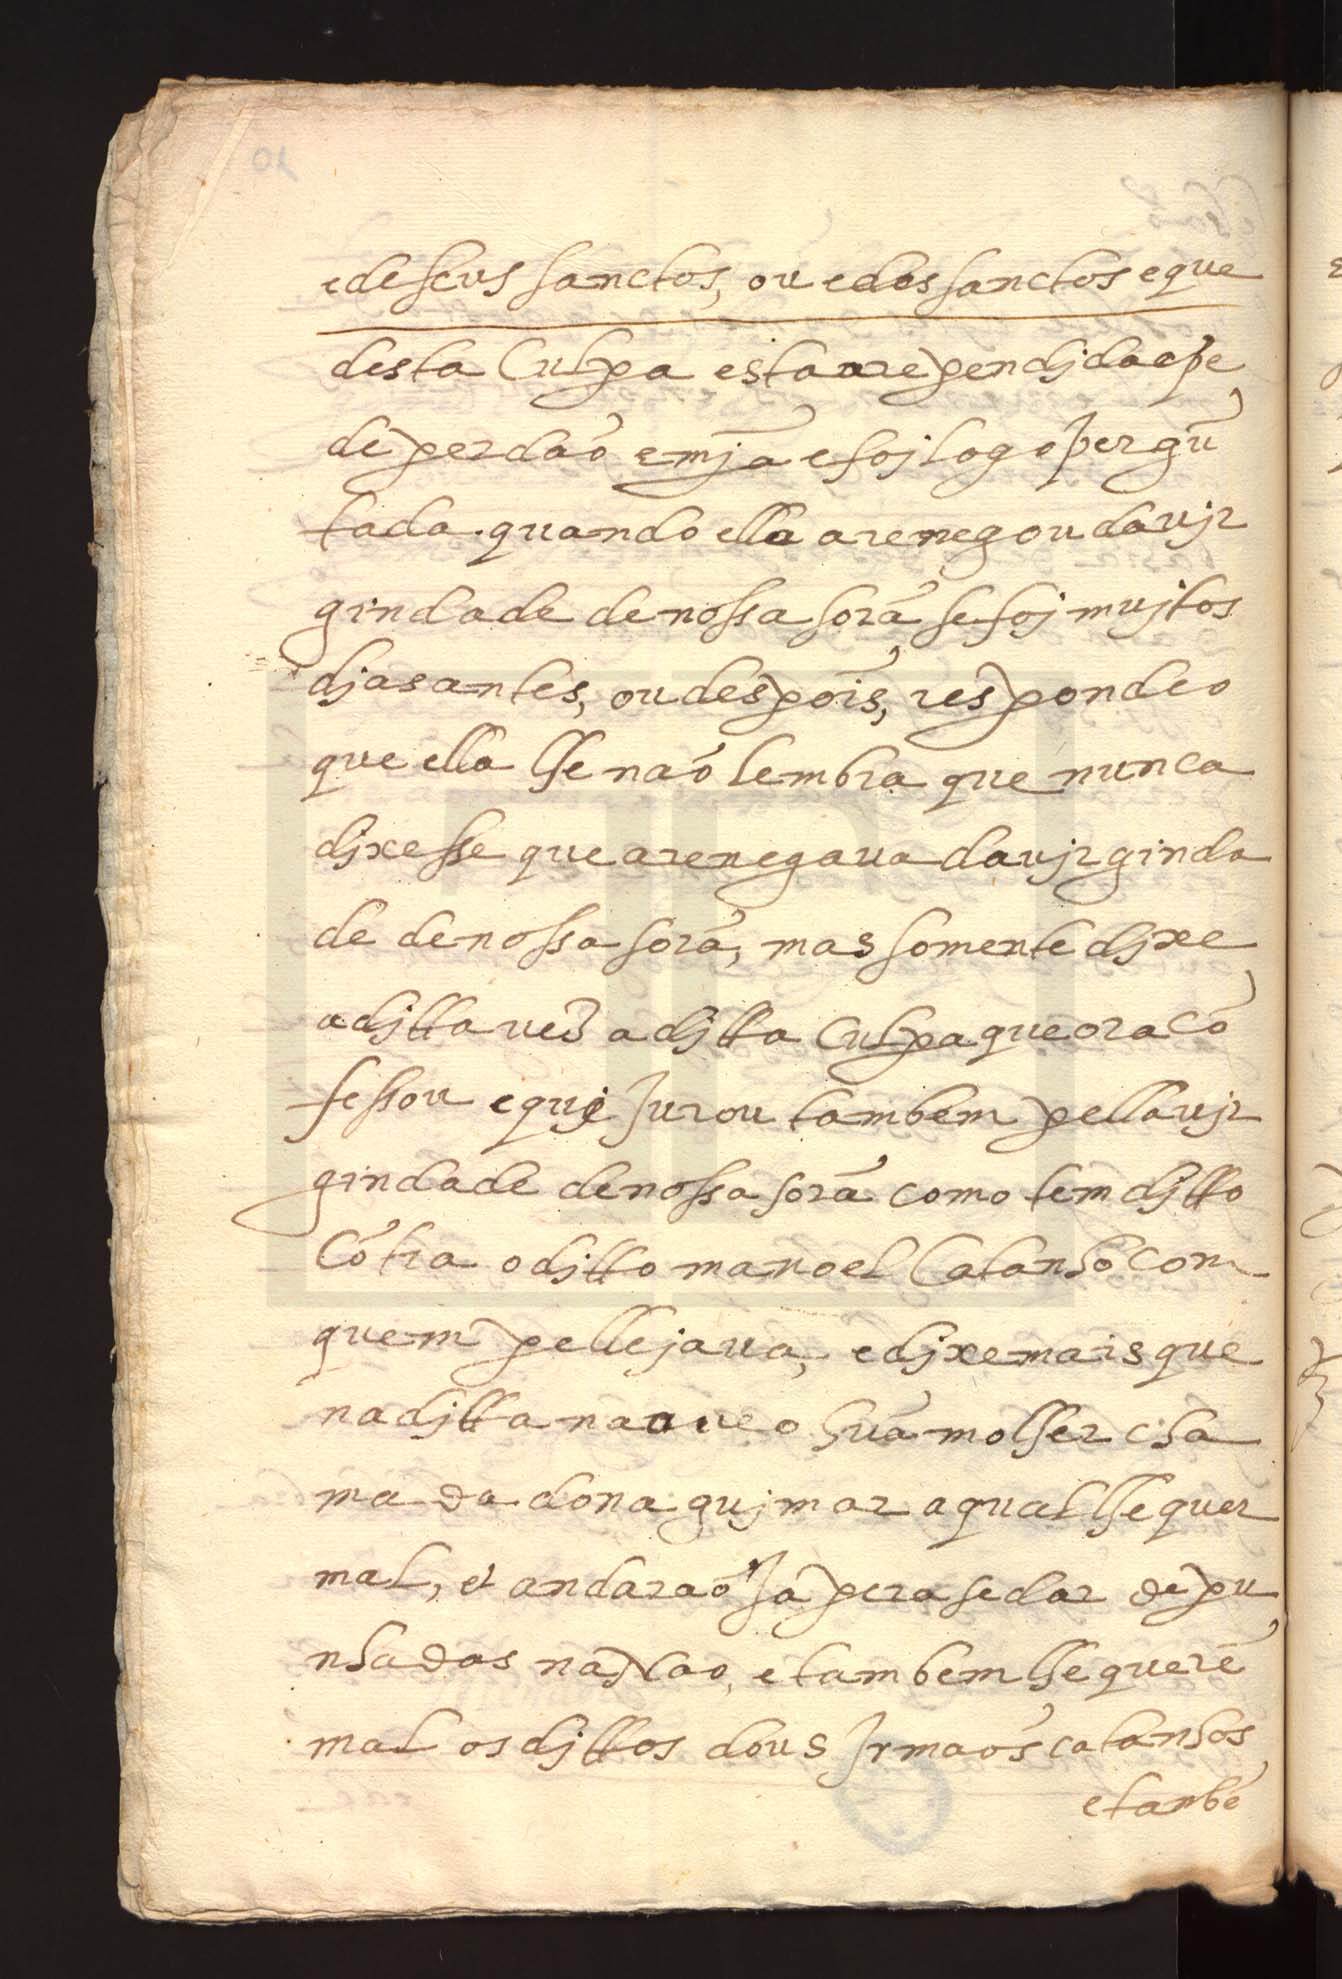 e de seus sanctos, ou e dos sanctos e que
desta Culpa esta arependjda e pe
de perdaõ e mjã e foj logo pergũ
tada. quando ella arenegou da vjr
gindade de nossa sorã, se foj mujtos
djas antes, ou despois, respondeo
que ella lhe naõ lembra que nunca
djxesse que arenegaua da vjrginda
de de nossa sorã, mas somente djxe
a djtta ues a djtta Culpa que ora cõ
fessou e que Jurou tambem pella vjr
gindade de nossa sorã como tem djtto
Cõtra o djtto manoel Catanho com
quem pellejaua, e djxe mais que
na djtta nao ueo hũa molher cha
mada dona gujmar a qual lhe quer
mal, et andaraõ Ja pera se dar de pu
nhadas na nao, e tambem lhe querẽ
mal os djttos dous Jrmaõs catanhos
e tambẽ
10